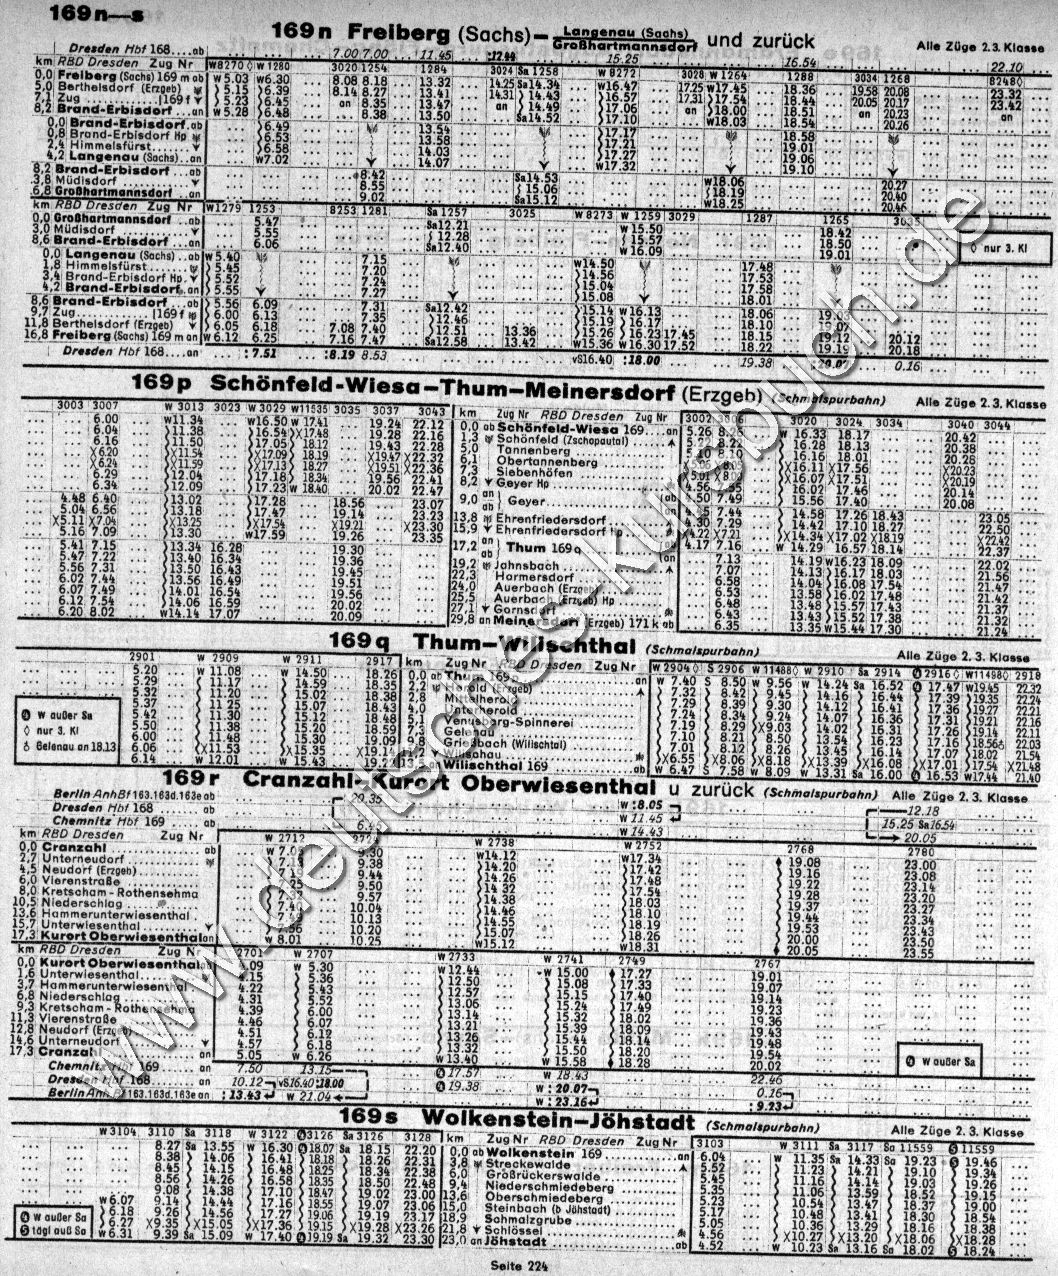 169n—s
169n Freiberg (Sachs)–Langenau (Sachs)
Großhartmannsdorf und zurück
Alle Züge 2.3. Klasse
Dresden Hbf 168....ab 7.00 7.00 11.45 15.25 16.54 22.10
km RBD Dresden Zug Nr W8270◊ W1280 3020 1254 1284 3024 Sa 1258 W8272 3028 W1264 1288 3034 1268 8248◊
0,0 Freiberg (Sachs) 169 m ab W5.03 W6.30 8.08 8.18 13.32 14.25 Sa14.34 W16.47 17.25 W17.45 18.36 19.58 20.08 23.32
5,0 Berthelsdorf (Erzgeb) 5.15 6.39 8.14 8.27 13.41 14.31 14.43 16.57 17.31 17.54 18.44 20.05 20.17 23.42
7,1 Zug 169 f 5.23 6.45 an 8.35 13.47 an 14.49 17.06 an 18.00 18.51 an 20.23 an
8,2 Brand-Erbisdorf an W5.28 6.48 8.38 13.50 Sa14.52 17.10 W18.03 18.54 20.26
0,0 Brand-Erbisdorf ab 6.49 13.54 17.17 18.58
0,8 Brand-Erbisdorf Hp 6.53 13.58 17.21 19.01
2,4 Himmelsfürst 6.58 14.03 17.27 19.06
4,2 Langenau (Sachs) an W7.02 14.07 W17.32 19.10
8,2 Brand-Erbisdorf ab 8.42 Sa14.53 W18.06 20.27
3,8 Müdisdorf 8.55 15.06 18.19 20.40
6,8 Großhartmannsdorf an 9.02 Sa15.12 W18.25 20.46
km RBD Dresden Zug Nr W1279 1253 8253 1281 Sa 1257 3025 W8273 W 1259 3029 1287 1265
0,0 Großhartmannsdorf ab 5.47 Sa12.21 W15.50 18.42
3,0 Müdisdorf 5.55 12.28 15.57 18.50
8,6 Brand-Erbisdorf an 6.06 Sa12.40 W16.09 19.01
◊ nur 3. Kl
0,0 Langenau (Sachs) ab W5.40 7.15 W14.50 17.48
1,8 Himmelsfürst 5.45 7.20 14.56 17.53
3,4 Brand-Erbisdorf Hp 5.52 7.24 15.04 17.58
4,2 Brand-Erbisdorf an 5.55 7.27 15.08 18.01
8,6 Brand-Erbisdorf ab 5.56 6.09 7.31 Sa12.42 15.14 W16.13 18.06
9,7 Zug 169 f 6.00 6.13 7.35 12.46 15.19 16.17 18.10
11,8 Berthelsdorf (Erzgeb) 6.05 6.18 7.08 7.40 12.51 13.36 15.26 16.23 17.45 18.15 19.12 20.12
16,8 Freiberg (Sachs) 169 m an W6.12 6.25 7.16 7.47 Sa12.58 13.42 W15.36 W16.30 17.52 18.22 19.19 20.18
Dresden Hbf 168 an :7.51 :8.19 8.53 vS16.40 :18.00 19.38 0.16
169p Schönfeld-Wiesa–Thum–Meinersdorf (Erzgeb) (Schmalspurbahn) Alle Züge 2.3. Klasse
3003 3007 W 3013 3023 W 3029 W11535 3035 3037 3043 km Zug Nr RBD Dresden Zug Nr 3002 3006 3020 3024 3034 3040 3044
6.00 W11.34 W16.50 W17.41 19.24 22.12 0,0 ab Schönfeld-Wiesa 169 an 5.26 W16.33 18.17 20.42
6.04 11.38 16.54 ×17.48 19.28 22.16 1,3 Schönfeld (Zschopautal) 16.28 18.13 20.38
6.16 11.50 17.05 18.12 19.43 22.28 5,0 Tannenberg 16.16 18.01 20.28
×6.20 ×11.54 ×17.09 18.19 ×19.47 ×22.32 6,1 Obertannenberg ×16.11 ×17.56 ×20.23
×6.24 ×11.59 ×17.13 18.27 ×19.51 ×22.36 7,3 Siebenhöfen ×16.07 ×17.51 ×20.19
6.29 12.04 17.18 18.34 19.56 22.41 8,2 Geyer Hp 16.02 17.46 20.14
6.34 12.09 17.23 W18.40 20.02 22.47 9,0 an Geyer 7.49 15.56 17.40 20.08
4.48 6.40 13.02 17.28 18.56 23.07 ab 7.44 14.58 17.26 18.43 23.05
5.04 6.56 13.18 17.47 19.14 23.23 13,8 Ehrenfriedersdorf 4.30 7.29 14.42 17.10 18.27 22.50
×5.11 ×7.04 ×13.25 ×17.54 ×19.21 ×23.30 15,9 Ehrenfriedersdorf Hp 4.22 ×7.21 ×14.34 ×17.02 ×18.19 ×22.42
5.16 7.09 13.30 W17.59 19.26 23.35 17,2 an Thum 169q 4.17 7.16 W14.29 16.57 18.14 22.37
5.41 7.15 13.34 16.28 19.30 ab 7.13 14.19 W16.23 18.09 22.02
5.47 7.22 13.40 16.34 19.36 19,2 Jahnsbach 7.07 14.13 16.17 18.03 21.56
5.56 7.31 13.50 16.43 19.45 22,3 Hormersdorf 6.58 14.04 16.08 17.54 21.47
6.02 7.44 13.56 16.49 19.51 24,0 Auerbach (Erzgeb) 6.53 13.58 16.02 17.48 21.42
6.07 7.49 14.01 16.54 19.56 25,5 Auerbach (Erzgeb) Hp 6.48 13.48 15.57 17.43 21.37
6.12 7.54 14.06 16.59 20.02 27,1 Gornsdorf 6.43 13.42 15.51 17.37 21.32
6.20 8.02 W14.14 17.07 20.09 29,8 an Meinersdorf (Erzgeb) 171 k ab 6.35 13.35 W15.44 17.30 21.24
169q Thum–Wilischthal (Schmalspurbahn) Alle Züge 2.3. Klasse
2901 W 2909 W 2911 2917 km Zug Nr RBD Dresden Zug Nr W 2904◊ S 2906 W11488◊ W 2910 Sa 2914 2916◊ W11498◊ 2918
5.20 W11.08 W14.50 18.26 0,0 ab Thum 169p an W7.40 S8.50 W9.56 W14.24 Sa16.52 17.47 W19.45 22.32
5.29 11.17 14.59 18.35 Herold (Erzgeb) 7.32 8.42 9.45 14.16 16.44 17.39 19.35 22.24
5.32 11.20 15.02 18.38 Mittelherold 7.29 8.39 9.30 14.12 16.41 17.36 19.27 22.21
5.37 11.25 15.07 18.43 4,0 Unterherold 7.24 8.34 9.24 14.07 16.36 17.31 19.21 22.16
5.42 11.30 15.12 18.48 Venusberg-Spinnerei 7.19 8.29 ×9.03 14.02 16.31 17.26 19.14 22.11
5.51 11.38 15.20 18.59 Gelenau 7.10 8.21 8.50 13.54 16.23 17.16 18.56 22.03
6.00 11.48 15.30 19.09 Griesbach (Wilischtal) 7.01 8.12 8.26 13.45 16.14 17.08 18.02 21.54
6.06 ×11.53 ×15.35 Wilischau ×6.55 ×8.06 ×8.18 ×13.39 ×16.08 ×17.01 ×17.54 ×21.48
6.14 W12.01 W15.43 Wilischthal 169 ab W6.47 S7.58 W8.09 W13.31 Sa16.00 16.53 W17.44 21.40
W außer Sa
◊ nur 3. Kl
Gelenau an 18.13
169r Cranzahl–Kurort Oberwiesenthal u zurück (Schmalspurbahn) Alle Züge 2.3. Klasse
Berlin Anh Bf 163.163d.163e ab 20.35 W:8.05 12.18
Dresden Hbf 168 W11.45 15.25 Sa16.54
Chemnitz Hbf 169 ab W14.43 20.05
km RBD Dresden Zug Nr W 2712 W 2738 W 2752 2768 2780
0,0 Cranzahl ab W14.12 W17.34 19.08 23.00
2,7 Unterneudorf 9.38 14.20 17.42 19.16 23.08
4,5 Neudorf (Erzgeb) 9.44 14.26 17.48 19.22 23.14
6,0 Vierenstraße 9.50 14.32 17.54 19.28 23.20
8,0 Kretscham-Rothensehma 9.57 14.38 18.03 19.37 23.27
10,5 Niederschlag 10.04 14.46 18.10 19.44 23.34
13,6 Hammerunterwiesenthal 10.13 14.55 18.19 19.53 23.43
15,7 Unterwiesenthal 10.20 15.07 18.26 20.00 23.50
17,3 Kurort Oberwiesenthal an W8.01 10.25 W15.12 W18.31 20.05 23.55
km RBD Dresden Zug Nr 2701 W 2707 W 2733 W 2741 2749 2767
0,0 Kurort Oberwiesenthal ab W5.30 W12.44 W15.00 17.27 19.01
1,6 Unterwiesenthal 4.15 5.36 12.50 15.08 17.33 19.07
3,7 Hammerunterwiesenthal 4.22 5.43 12.57 15.15 17.40 19.14
6,8 Niederschlag 4.31 5.52 13.06 15.24 17.49 19.23
9,3 Kretscham-Rothensehma 4.39 6.00 13.14 15.32 18.02 19.36
11,3 Vierenstraße 4.46 6.07 13.21 15.39 18.09 19.43
12,8 Neudorf (Erzgeb) 4.51 6.12 13.26 15.44 18.14 19.48
14,6 Unterneudorf 4.57 6.18 13.32 15.50 18.20 19.54
17,3 Cranzahl an 5.05 W6.26 W13.40 W15.58 18.28 20.02
Chemnitz Hbf 169 an 7.50 13.15 17.57 W18.43 22.46
Dresden Hbf 168 an 10.12 vS16.40 :18.00 19.38 W:20.07 0.16
Berlin Anh Bf 163.163d.163e an :13.43 W21.04 W:23.16 :9.23
W außer Sa
169s Wolkenstein–Jöhstadt (Schmalspurbahn) Alle Züge 2.3. Klasse
W3104 3110 Sa 3118 W 3122 3126 Sa 3126 3128 km Zug Nr RBD Dresden Zug Nr 3103 W 3111 Sa 3117 Sa 11559 11559
8.27 Sa13.55 W16.30 18.07 Sa18.15 22.20 0,0 ab Wolkenstein 169 an 6.04 W11.35 Sa14.33 Sa19.23 19.46
8.38 14.06 16.41 18.18 18.26 22.31 3,8 Streckewalde 5.52 11.23 14.21 19.10 19.34
8.45 14.15 16.48 18.25 18.34 22.38 6,0 Großrückerswalde 5.45 11.16 14.14 19.03 19.26
8.56 14.26 16.58 18.35 18.50 22.48 9,4 Niederschmiedeberg 5.35 11.06 13.59 18.52 19.15
9.08 14.38 17.10 18.47 19.02 23.00 13,6 Oberschmiedeberg 5.23 10.54 13.47 18.37 19.00
W6.07 9.14 14.44 17.16 18.55 19.07 23.06 15,0 Steinbach (b Jöhstadt) 5.17 10.48 13.41 18.30 18.54
6.18 9.26 14.56 17.27 19.06 19.19 23.17 18,9 Schmalzgrube 5.05 10.36 13.29 18.16 18.38
6.27 ×9.35 ×15.05 ×17.36 19.15 ×19.28 ×23.26 21,8 Schlössel 4.56 ×10.27 ×13.20 ×18.06 ×18.28
W6.31 9.39 Sa15.09 W17.40 19.19 Sa19.32 23.30 23,0 an Jöhstadt ab 4.52 W10.23 Sa13.16 Sa18.02 18.24
W außer Sa
tägl auß Sa
Seite 224
www.deutsches-kursbuch.de